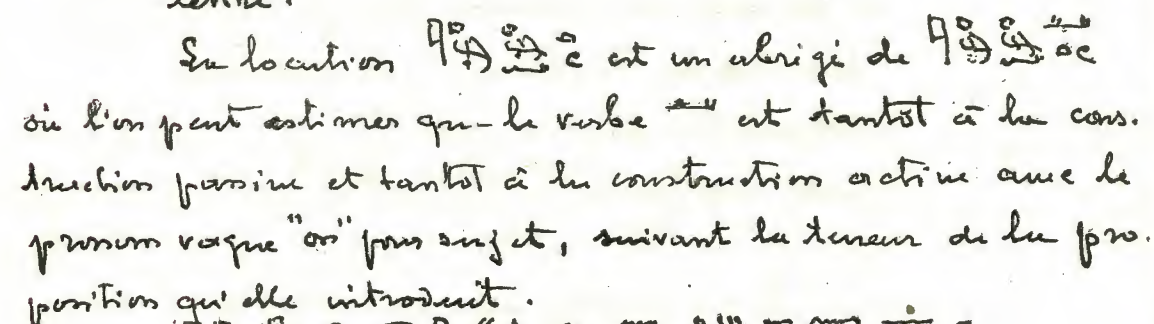 La locution est un abrigé de
où l'on peut estimer que le verbe est tantôt à la cons.
truction passive et tantôt à la construction active avec le
pronom vague "on" pour sujet, suivant la teneur de la pro.
position qu'elle introduit.